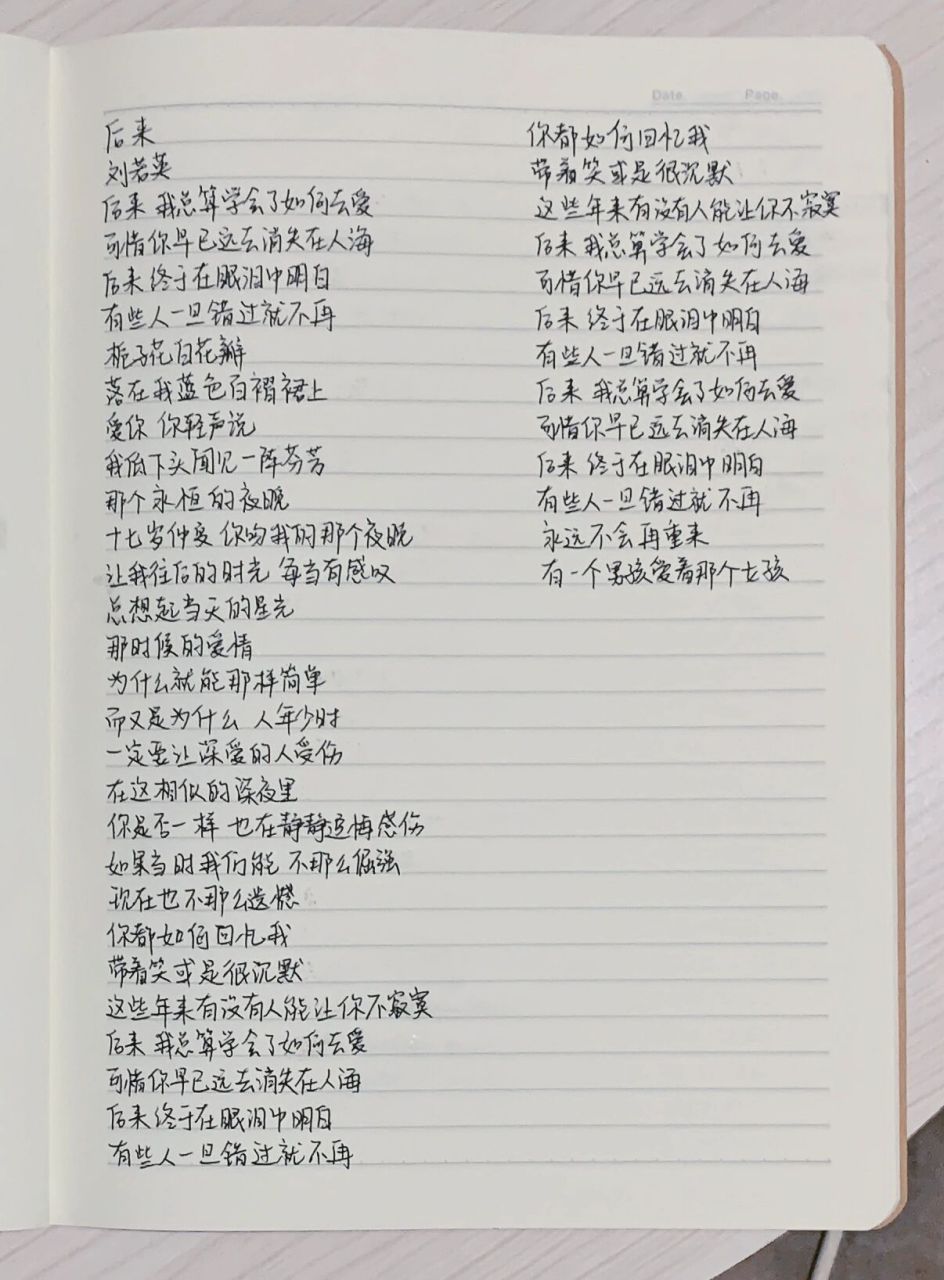 Date
Page
后来
刘若英
后来 我总算学会了如何去爱
可惜你早已远去消失在人海
后来 终于在眼泪中明白
有些人一旦错过就不再
栀子花白花瓣
落在我蓝色百褶裙上
爱你 你轻声说
我低下头闻见一阵芬芳
那个永恒的夜晚
十七岁仲夏 你吻我的那个夜晚
让我往后的时光 每当有感叹
总想起当天的星光
那时候的爱情
为什么就能那样简单
而又是为什么 人年少时
一定要让深爱的人受伤
在这相似的深夜里
你是否一样 也在静静追悔感伤
如果当时我们能 不那么倔强
现在也不那么遗憾
你都如何回忆我
带着笑或是很沉默
这些年来有没有人能让你不寂寞
后来 我总算学会了如何去爱
可惜你早已远去消失在人海
后来 终于在眼泪中明白
有些人一旦错过就不再
你都如何回忆我
带着笑或是很沉默
这些年来有没有人能让你不寂寞
后来 我总算学会了如何去爱
可惜你早已远去消失在人海
后来 终于在眼泪中明白
有些人一旦错过就不再
后来 我总算学会了如何去爱
可惜你早已远去消失在人海
后来 终于在眼泪中明白
有些人一旦错过就不再
永远不会再重来
有一个男孩爱着那个女孩